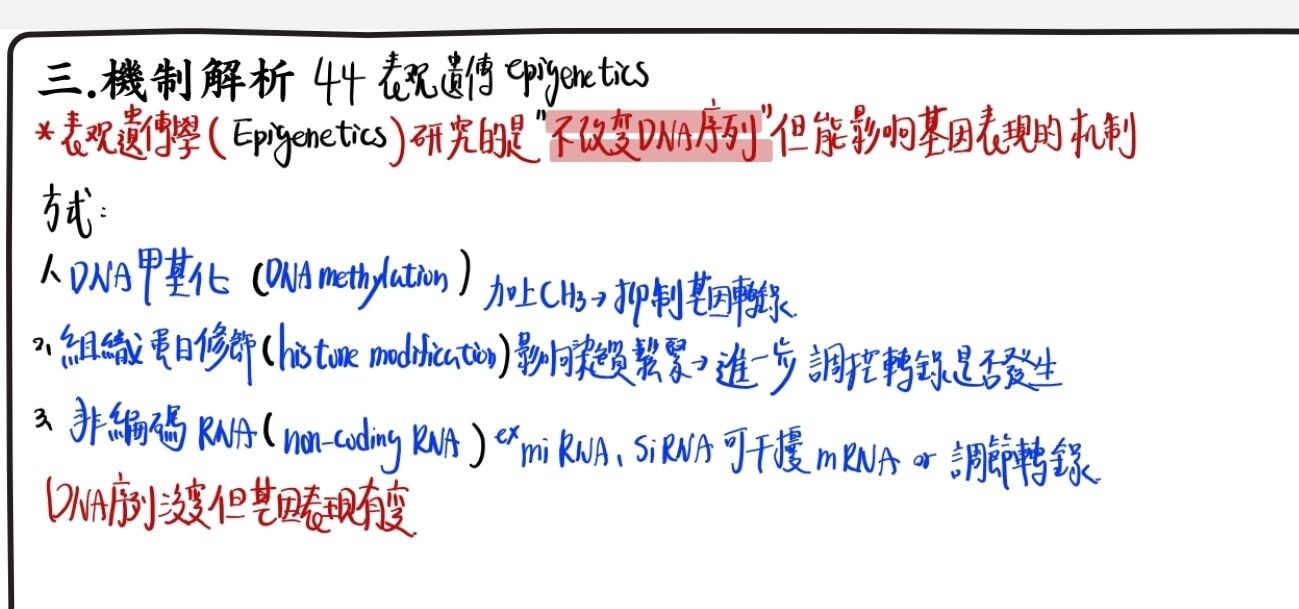 三.機制解析 44 表观遺傳 epigenetics
*表观遺傳學(Epigenetics)研究的是"不改变DNA序列"但能影响基因表現的机制
方式:
1. DNA甲基化 (DNA methylation) 加上CH3→抑制基因轉錄.
2. 組織蛋白修飾(histone modification)影响染鬆緊→進一步調控轉錄是否發生
3. 非編碼RNA(non-coding RNA) ex miRNA、SiRNA可干擾mRNA or 調節轉錄.
DNA序列没变但基因表現有变.